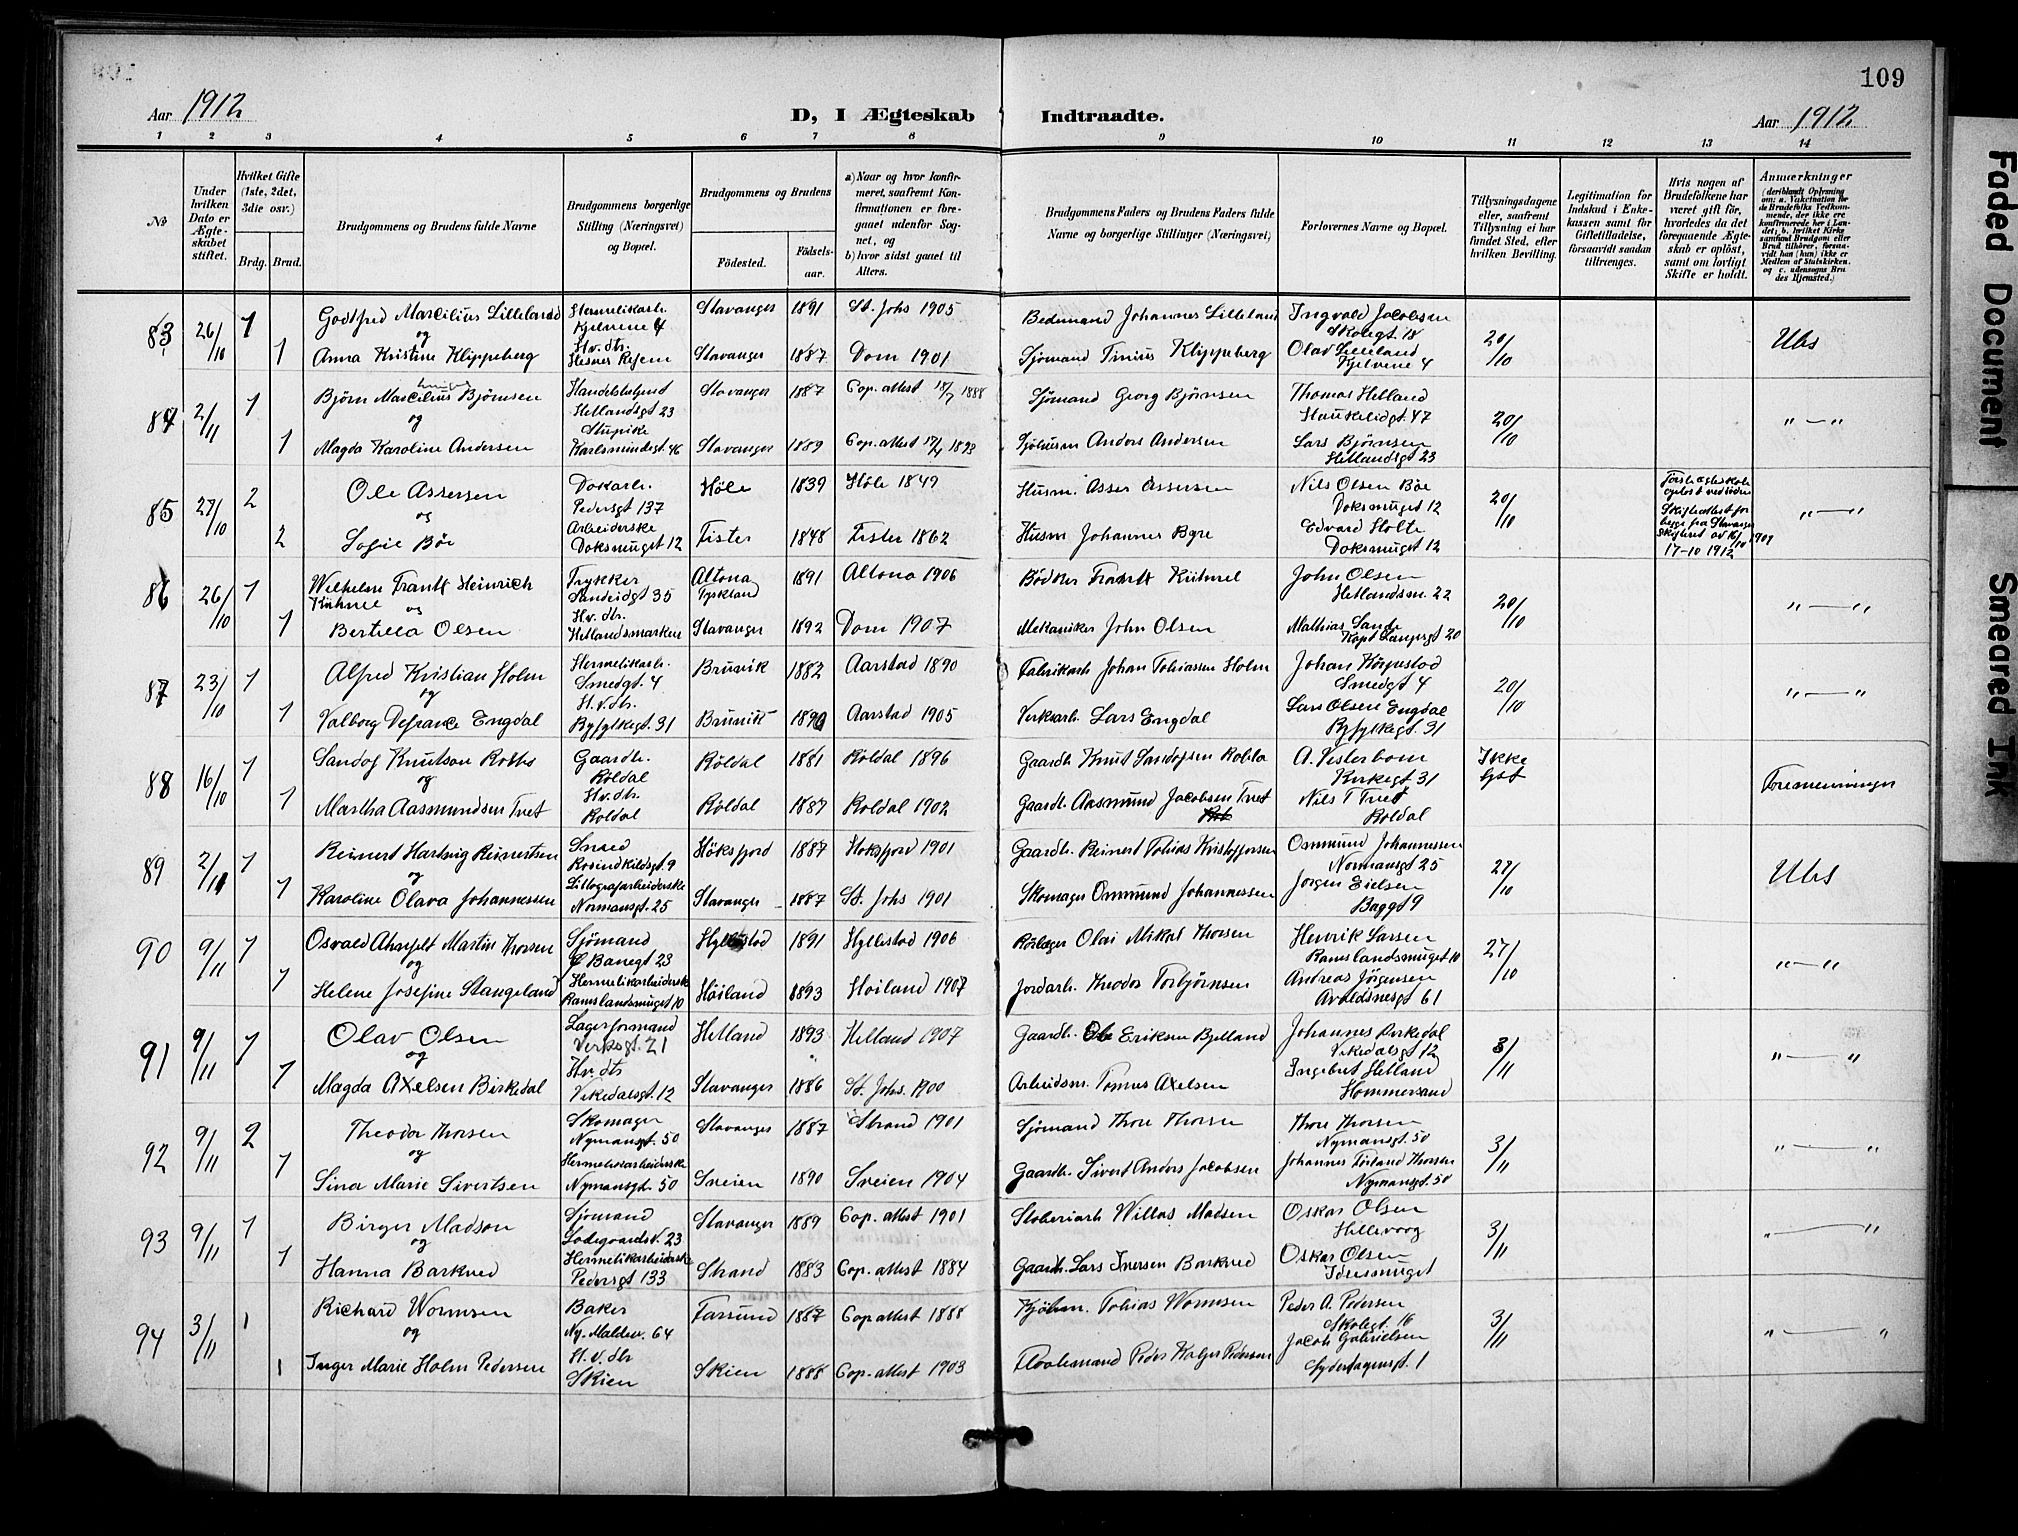 109
Aar 1912
D, I Ægteskab Indtraadte.
Aar 1912
1 2 3 4 5 6 7 8 9 10 11 12 13 14
No
Under hvilken Dato er Ægteskabet stiftet.
Hvilket Gifte (1ste, 2det, 3die osv.)
Brdg. Brud.
Brudgommens og Brudens fulde Navne
Brudgommens borgerlige Stilling (Næringsvei) og Bopæl.
Brudgommens og Brudens
Födested.
Födselsaar.
a) Naar og hvor konfirmeret, saafremt Konfirmationen er foregaaet udenfor Sognet, og
b) hvor sidst gaaet til Alters.
Brudgommens Faders og Brudens Faders fulde Navne og borgerlige Stillinger (Næringsvei)
Forlovernes Navne og Bopæl.
Tillysningsdagene eller, saafremt Tillysning ei har fundet Sted, efter hvilken Bevilling.
Legitimation for Indskud i Enkekassen samt for Giftetilladelse, forsaavidt saadan tiltrænges.
Hvis nogen af Brudefolkene har været gift för, hvorledes da det foregaaende Ægteskab er oplöst, samt om lovligt Skifte er holdt.
Anmerkninger
83 26/10 1 Godtfred Marcilius Lilleland Hermetikarb. Kjelvene 4 Stavanger 1891 St. Johs 1905 Bedemand Johannes Lilleland Ingvald Jacobsen Skolegt 18 20/10 Ubs
og
1 Anna Kristine Klippeberg Hv. dtr. Stavanger 1887 Dom 1901 Sjömand Tinius Klippeberg Olav Lilleland Kjelvene 4
84 2/11 1 Björn Marcilius Bjørnsen Hetlandsgt 23 Stavanger 1887 Cop. attest 18/7 1888 Sjömand Georg Bjørnsen Thomas Helland Haukeligt. 47 20/10 " — "
og
1 Magda Karoline Andersen Karlsmindegt. 46 Stavanger 1889 Cop. attest 1893 Anders Andersen Lars Bjørnsen Hetlandsgt 23
85 27/10 2 Ole Assersen Dokarb. Pedersgt 137 Höle 1839 Höle 1849 Husm. Asser Assersen Nils Olsen Böe Doksmuget 12 20/10 " — "
og
2 Sofie Böe Arbeiderske Doksmuget 12 Fister 1848 Fister 1862 Husm Johannes Edvard Holte Doksmuget 12 17-10 1912
86 26/10 1 Wilhelm Frantz Heinrich Kühnel Trykker 35 Altona Tyskland 1891 Altona 1906 Bödker Frantz Kühnel John Olsen Hetlandsm. 22 20/10 " — "
og
1 Bertilla Olsen Hv. dtr. Hetlandsmarken Stavanger 1892 Dom 1907 Mekaniker John Olsen Mathias Sande Kapt Langesgt 20
87 23/10 1 Alfred Kristian Holm Hermetikarb. Smedgt. 4 Bruvik 1882 Aarstad 1890 Fabrikarb Johan Tobiassen Holm Johan Smedgt 4 20/10 " — "
og
1 Valborg Defrance Engdal H.v.dtr. Ryfylkegt. 31 Bruvik 1890 Aarstad 1905 Verksarb. Lars Engdal Lars Olsen Engdal Ryfylkegt. 31
88 16/10 1 Sandof Knutson Gaardb. Röldal Röldal 1881 Röldal 1896 Gaardb Knut A. Vesterbom Kirkegt 31 Ikke lyst
og
1 Martha Aasmundsen Tvet Hv.dtr. Roldal Röldal 1887 Roldal 1902 Gaardb. Aasmund Jacobsen Tvet Nils T Tvet Roldal
89 2/11 1 Reinert Hartvig Reinertsen Smed 9 Höksfjord 1887 Hoksfjord 1901 Gaardb. Reinert Tobias Kristoffersen Osmund Johannessen Normansgt 25 27/10 Ubs
og
1 Karoline Olava Johannessen Normansgt. 25 Stavanger 1887 St. Johs 1901 Skomager Osmund Johannessen Jørgen Eielsen 9
90 9/11 1 Osvald Martin Thorsen Sjömand Banegt 23 Hyllestad 1891 Hyllestad 1906 Olai Mikal Thorsen Henrik Larsen Ramslandsmuget 10 27/10 " — "
og
1 Helene Josefine Stangeland Hermetikarbeiderske Ramslandsmuget 10 Höiland 1893 Höiland 1907 Jordarb. Theodor Torbjørnsen Andreas Jørgensen Avaldsnesgt 61
91 9/11 1 Olav Olsen Lagerformand Verksgt. 21 Hetland 1893 Hetland 1907 Gaardb. Ole Eriksen Bjelland Johannes Birkedal Vikedalsgt 12 3/11 " — "
og
1 Magda Axelsen Birkedal Hv. dtr Vikedalsgt. 12 Stavanger 1886 St. Johs. 1900 Arbeidsm. Tomas Axelsen Ingebret Hetland Hommersand
92 9/11 2 Theodor Thorsen Skomager Nymansgt. 50 Stavanger 1887 Strand 1901 Sjömand Thore Thorsen Thore Thorsen Nymansgt. 50 3/11 " "
og
1 Sina Marie Sivertsen Hermetikarbeiderske Nymansgt. 50 Sveien 1890 Sveien 1904 Gaardb. Sivert Anders Jacobsen Johannes Thorsen Nymansgt. 50
93 9/11 1 Birger Madsen Sjömand Ladegaardsv. 23 Stavanger 1889 Cop. attest 1901 Støberiarb Willas Madsen Oskar Olsen Hillevaag 3/11 " — "
og
1 Hanna Barkved Hermetikarbeiderske Pedersgt 133 Strand 1883 Cop. attest 1884 Gaardb. Lars Iversen Barkved Oskar Olsen
94 3/11 1 Richard Wormsen Baker Ny. Maldev. 64 Farsund 1887 Cop attest 1888 Kjöbm. Tobias Wormsen Peder A. Pedersen Skolegt. 16 3/11 " — "
og
1 Inger Marie Holm Pedersen H.v.dtr Skien Skien 1888 Cop. attest 1903 Peder Pedersen Jacob Gabrielsen 1
Faded Document
Smeared Ink